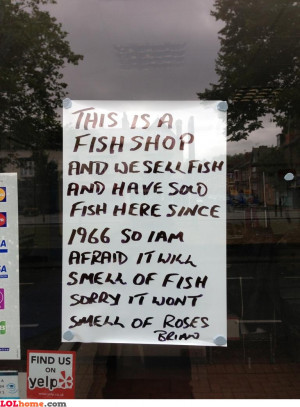 THIS IS A
FISH SHOP
AND WE SELL FISH
AND HAVE SOLD
FISH HERE SINCE
1966 SO I AM
AFRAID IT WILL
SMELL OF FISH
SORRY IT WONT
SMELL OF ROSES
BRIAN
FIND US
on
yelp
LOLhome.com